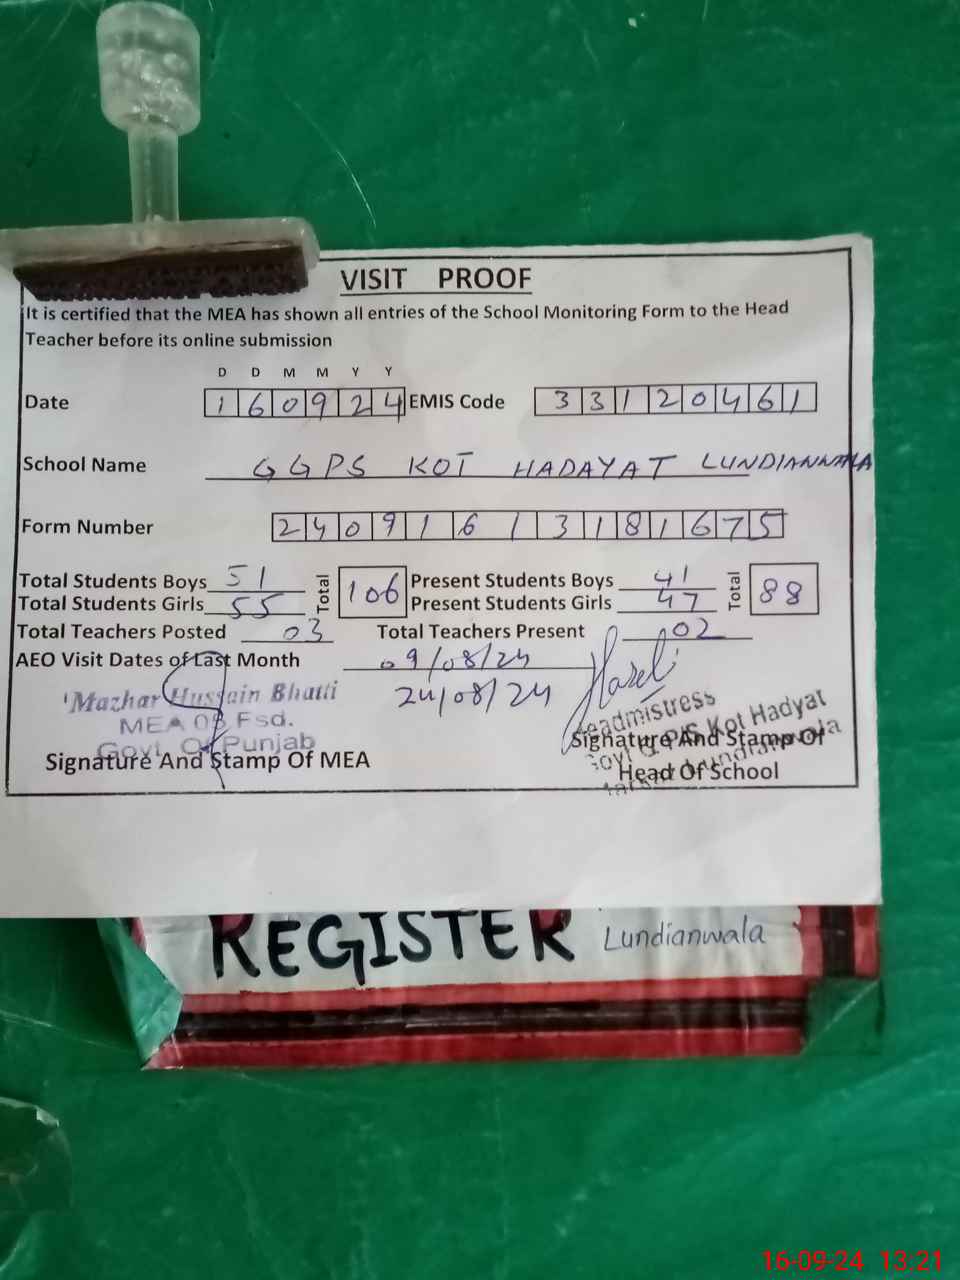 VISIT PROOF
It is certified that the MEA has shown all entries of the School Monitoring Form to the Head
Teacher before its online submission
D D M M Y Y
Date 160924 EMIS Code 33120461
School Name GGPS KOT HADAYAT LUNDIANWALA
Form Number 24091613181675
Total Students Boys 51 Total 106 Present Students Boys 41 Total 88
Total Students Girls 55 Present Students Girls 47
Total Teachers Posted 03 Total Teachers Present 02
AEO Visit Dates of Last Month 09/08/24
24/08/24
Mazhar Hussain Bhatti
MEA 08 Fsd.
Govt. Of Punjab
Signature And Stamp Of MEA
eadmistress
Kot Hadyat
Signature And Stamp Of
Head Of School
REGISTER Lundianwala
16-09-24 13:21